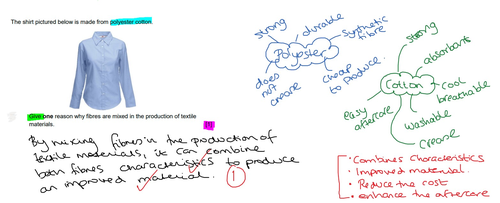 The shirt pictured below is made from polyester cotton.
Give one reason why fibres are mixed in the production of textile
materials.
[1]
By mixing fibres in the production of
textile materials, it can combine
both fibres characteristics to produce
an improved material.
1
strong
durable
synthetic
fibre
Polyester
does
not
crease
cheap
to produce.
strong
absorbant
Cotton
cool
breathable
easy
aftercare
washable
crease
• Combines characteristics
• Improved material.
• Reduce the cost
• enhance the aftercare